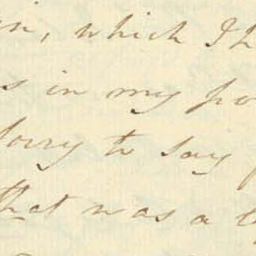 which I
s in my po
sorry to say
that was a